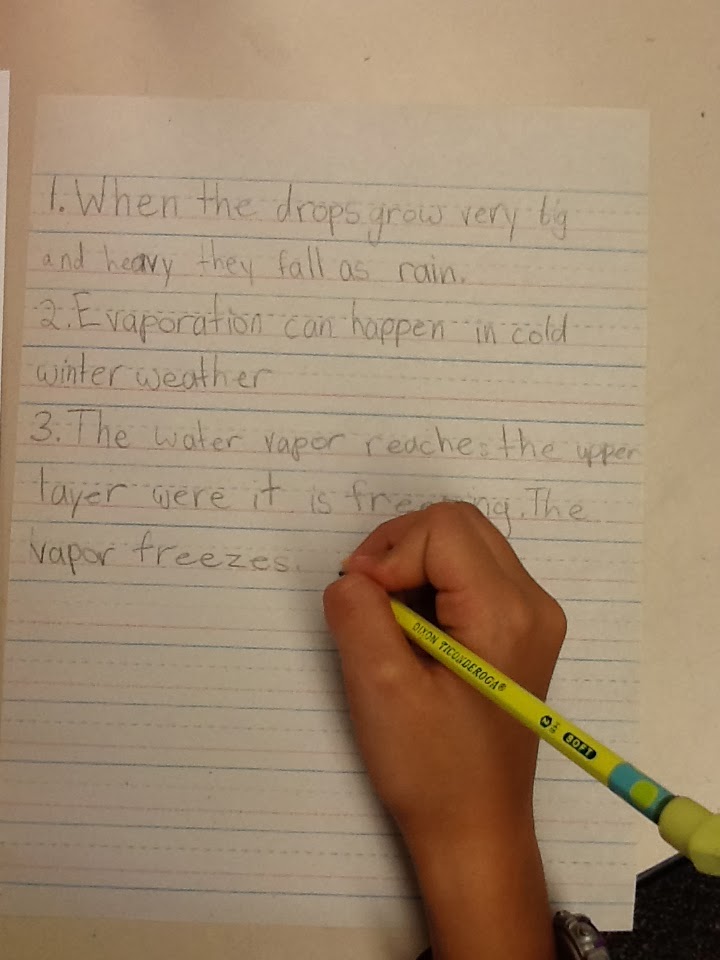 1. When the drops grow very big
and heavy they fall as rain.
2. Evaporation can happen in cold
winter weather
3. The water vapor reaches the upper
layer were it is freezing. The
vapor freezes.
DIXON TICONDEROGA®
2
SOFT